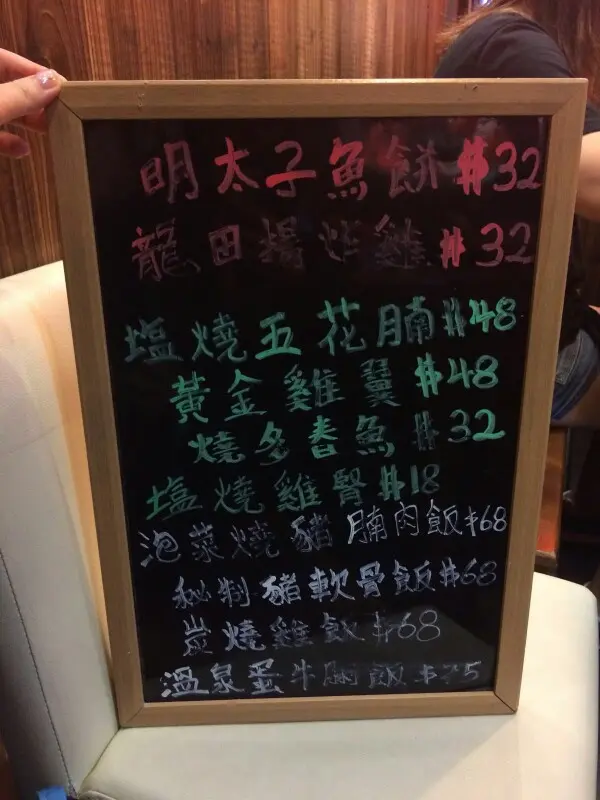 明太子魚餅 $32
龍田揚炸雞 $32
塩燒五花腩 $48
黃金雞翼 $48
燒多春魚 $32
塩燒雞腎 $18
泡菜燒豬腩肉飯 $68
秘制豬軟骨飯 $68
炭燒雞飯 $68
溫泉蛋牛胸飯 $75